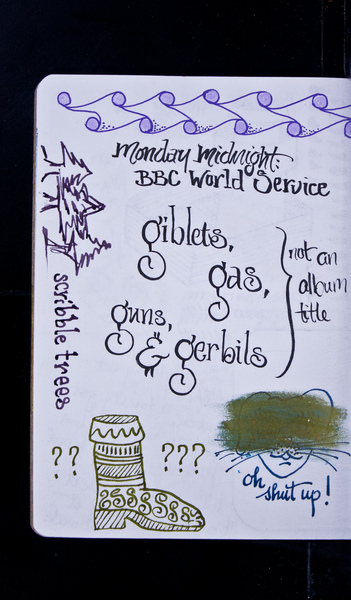 Monday Midnight:
BBC World Service
giblets,
gas,
guns,
& gerbils
not an
album
title
scribble trees
??
???
oh
shut up!